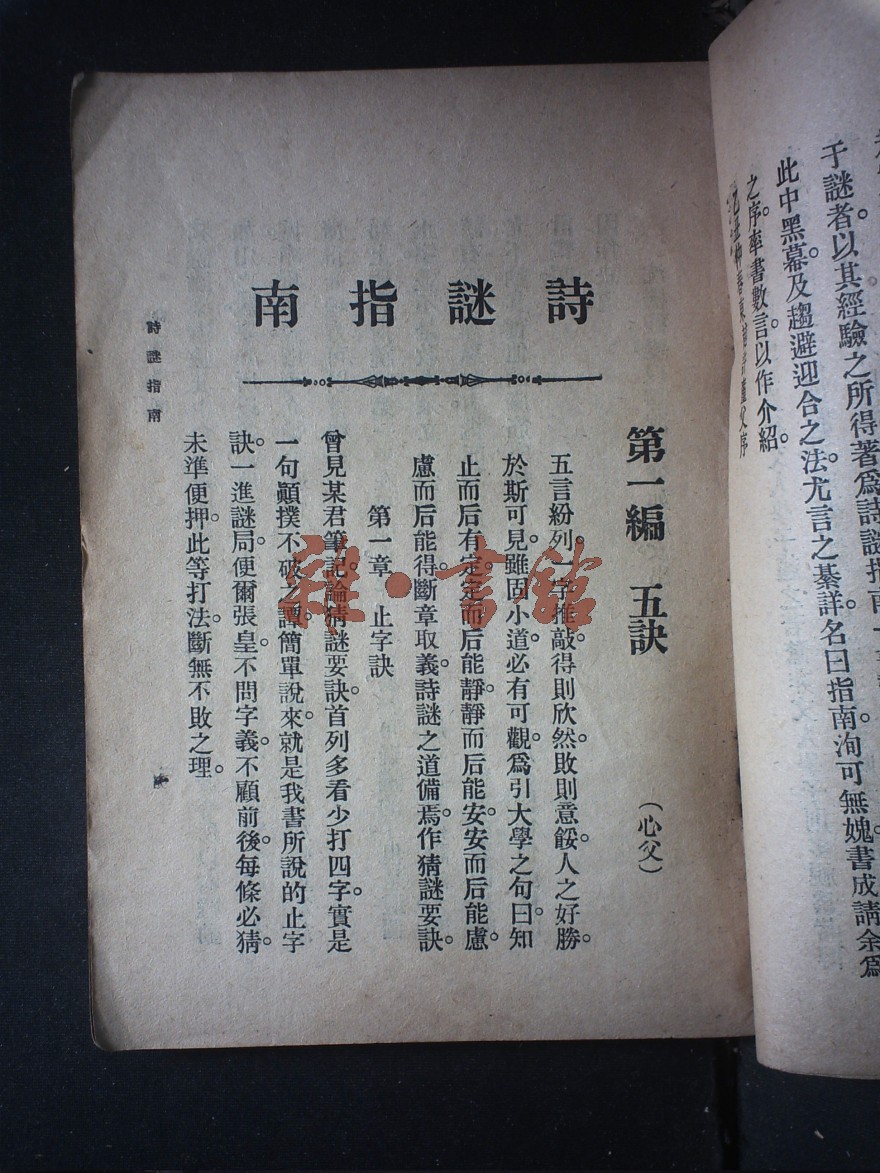 于謎者。以其經驗之所得著爲詩謎指南一
此中黑幕及趨避迎合之法。尤言之綦詳。名曰指南。洵可無媿。書成請余爲
之序。率書數言。以作介紹。
父序
詩謎指南
第一編　五訣　（心父）
五言紛列。一字推敲。得則欣然。敗則意餒。人之好勝。
於斯可見。雖固小道。必有可觀。爲引大學之句曰。知
止而后有定。定而后能靜。靜而后能安。安而后能慮。
慮而后能得。斷章取義。詩謎之道備焉。作猜謎要訣。
第一章　止字訣
曾見某君筆記。論猜謎要訣。首列多看少打四字。實是
一句顚撲不破之譚。簡單說來。就是我書所說的止字
訣。一進謎局。便爾張皇。不問字義。不顧前後。每條必猜。
未準便押。此等打法。斷無不敗之理。
詩謎指南
雜·書館